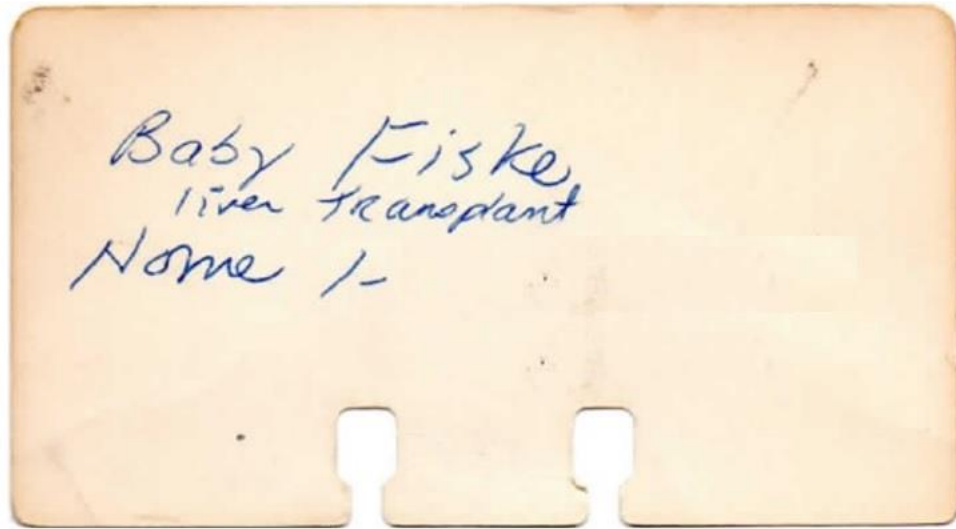 Baby Fiske
liver transplant
Home 1-